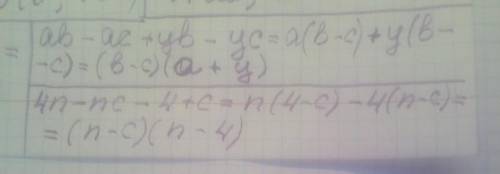 = ab - ac + yb - yc = a(b-c) + y(b-
-c) = (b-c)(a + y)
4n - nc - 4 + c = n(4-c) - 4(n-c) =
= (n-c)(n-4)